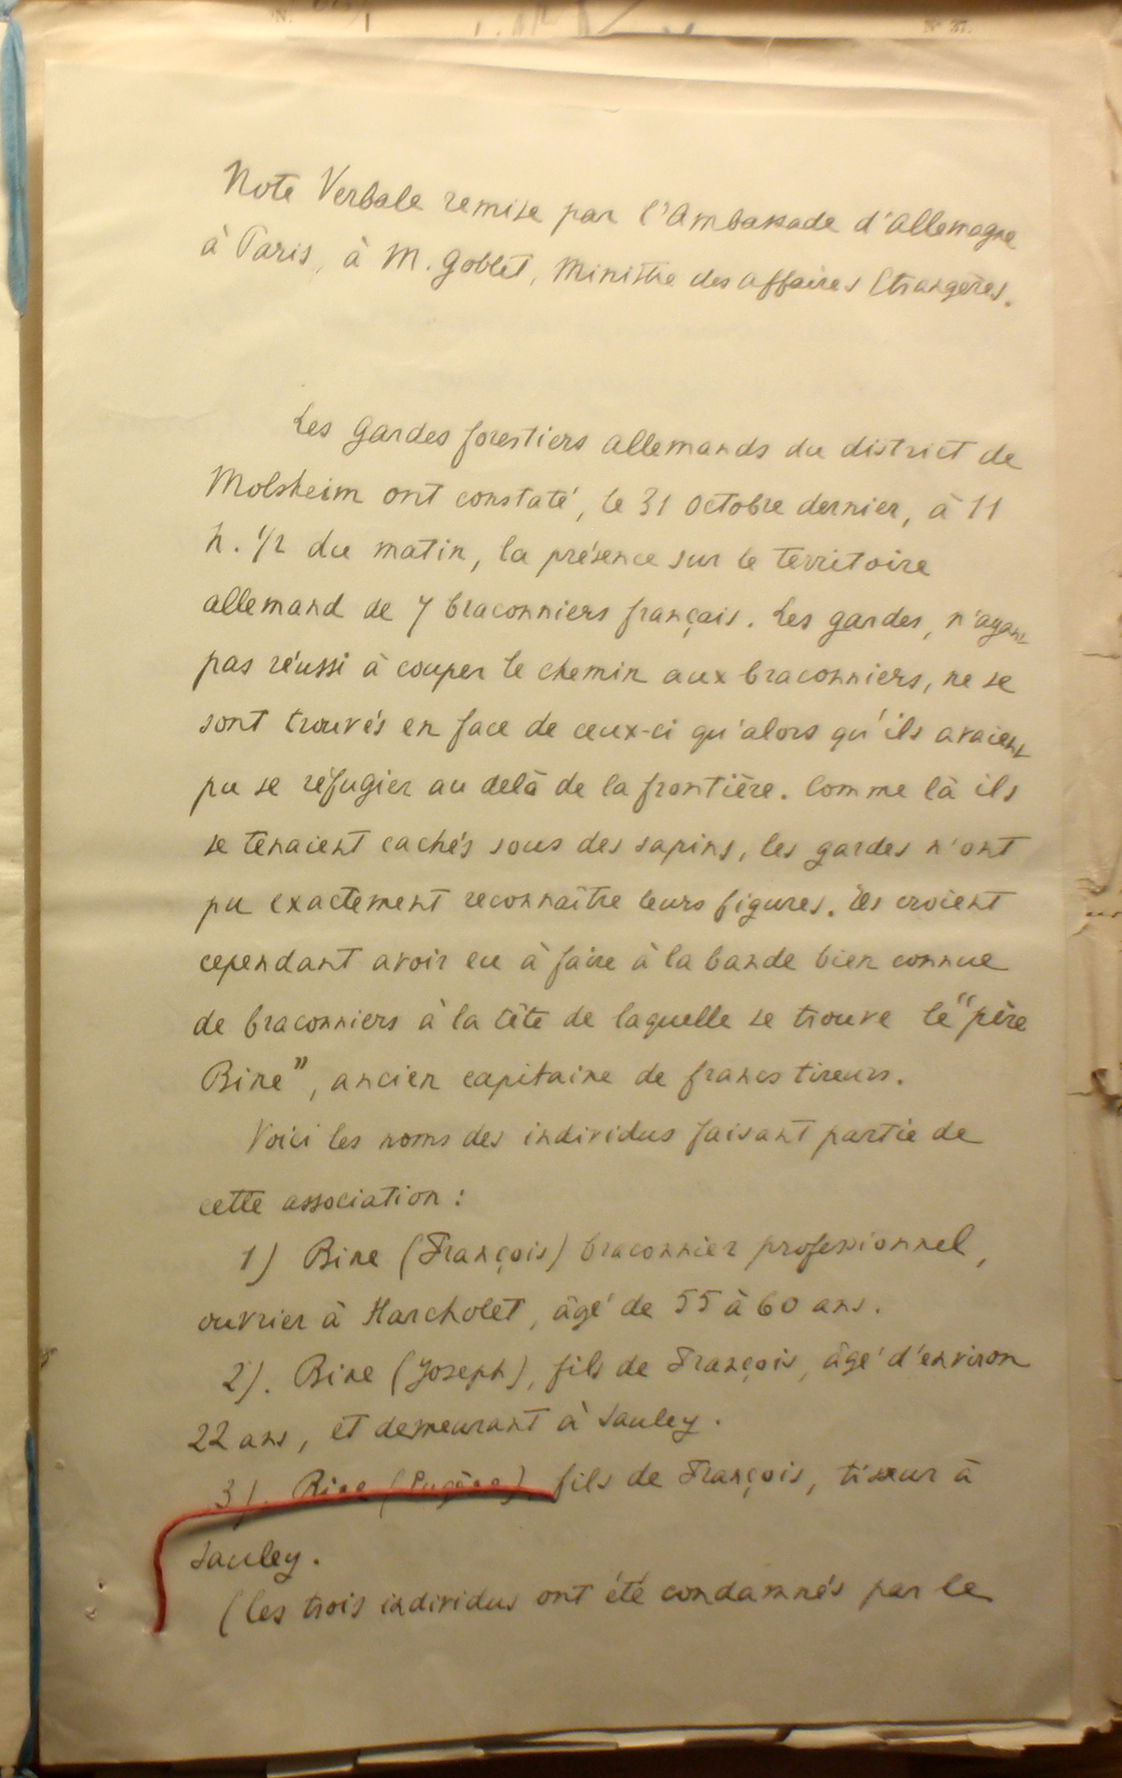 Note Verbale remise par l'Ambassade d'Allemagne
à Paris, à M. Goblet, Ministre des Affaires Etrangères.
Les gardes forestiers allemands du district de
Molsheim ont constaté, le 31 Octobre dernier, à 11
h. 1/2 du matin, la présence sur le territoire
allemand de 7 braconniers français. Les gardes, n'ayant
pas réussi à couper le chemin aux braconniers, ne se
sont trouvés en face de ceux-ci qu'alors qu'ils avaient
pu se réfugier au delà de la frontière. Comme là ils
se tenaient cachés sous des sapins, les gardes n'ont
pu exactement reconnaître leurs figures. Ils croient
cependant avoir eu à faire à la bande bien connue
de braconniers à la tête de laquelle se trouve le "père
Bine", ancien capitaine de francs tireurs.
Voici les noms des individus faisant partie de
cette association :
1) Bine (François) braconnier professionnel,
ouvrier à Harcholet, âgé de 55 à 60 ans.
2). Bine (Joseph), fils de François, âgé d'environ
22 ans, et demeurant à Sauley.
3). Bine (Eugène), fils de François, tisseur à
Sauley.
(les trois individus ont été condamnés par le